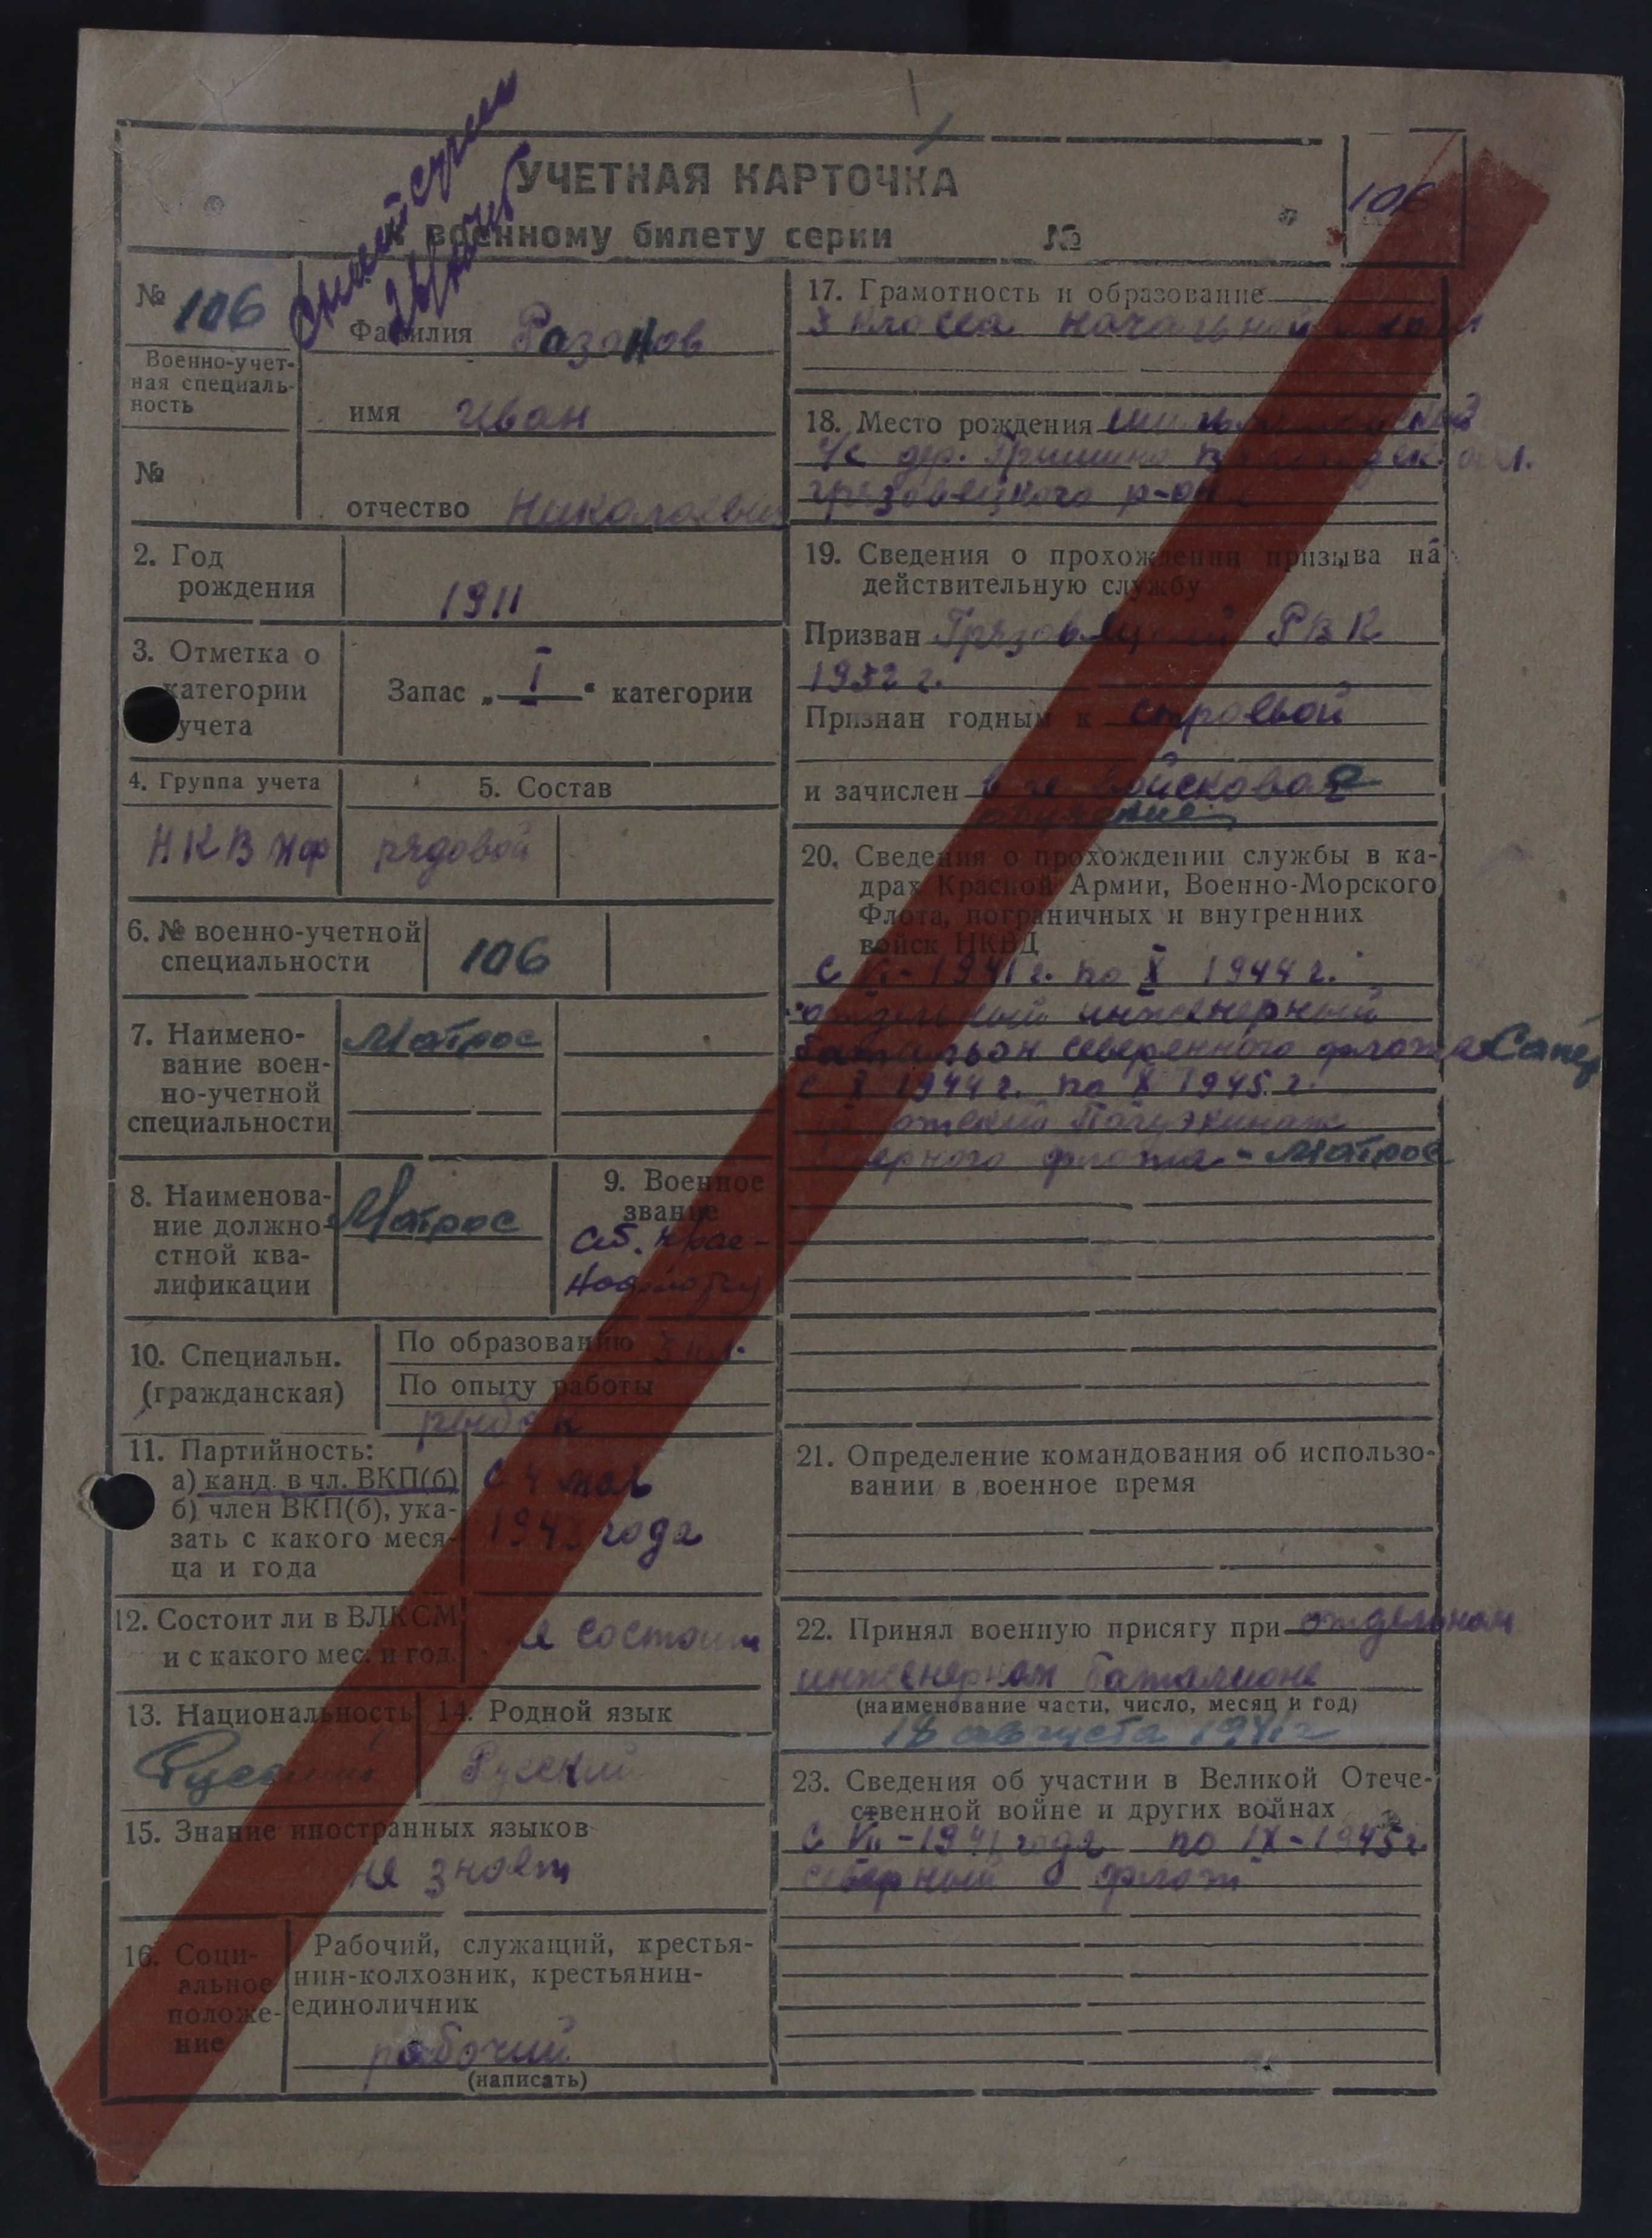 УЧЕТНАЯ КАРТОЧКА
к военному билету серии №
106
№ 106
Военно-учет-
ная специаль-
ность
№
Фамилия Разанов
имя Иван
отчество Николаевич
2. Год
рождения
1911
3. Отметка о
категории
учета
Запас „ I “ категории
4. Группа учета
НКВМФ
5. Состав
рядовой
6. № военно-учетной
специальности
106
7. Наимено-
вание воен-
но-учетной
специальности
Матрос
8. Наименова-
ние должно-
стной ква-
лификации
Матрос
9. Военное
звание
Ст. крас-
нофлотец
10. Специальн.
(гражданская)
По образованию 3 кл.
По опыту работы
рыбак
11. Партийность:
а) канд. в чл. ВКП(б)
б) член ВКП(б), ука-
зать с какого меся-
ца и года
с 4 мая
года
12. Состоит ли в ВЛКСМ
и с какого мес. и год.
не состоит
13. Национальность
Русский
14. Родной язык
Русский
15. Знание иностранных языков
не знает
16. Соци-
альное
положе-
ние
Рабочий, служащий, крестья-
нин-колхозник, крестьянин-
единоличник
рабочий
(написать)
17. Грамотность и образование
3 класса начальной школы
18. Место рождения
с/с дер. Вологодск. обл.
грязовецкого р-она
19. Сведения о прохождении призыва на
действительную службу
Призван Грязовецкий РВК
1932 г.
Признан годным к строевой
и зачислен в не войсковое
обучение
20. Сведения о прохождении службы в ка-
драх Красной Армии, Военно-Морского
Флота, пограничных и внутренних
войск НКВД
с 1941 г. по X 1944 г.
отдельный инженерный
батальон северенного флота Сапер
с X 1944 г. по X 1945 г.
флотский Полуэкипаж
северного флота - Матрос
21. Определение командования об использо-
вании в военное время
22. Принял военную присягу при отдельном
инженерном баталионе
(наименование части, число, месяц и год)
18 августа 1941 г
23. Сведения об участии в Великой Отече-
ственной войне и других войнах
с VII-1941 года по IX-1945 г.
северный флот